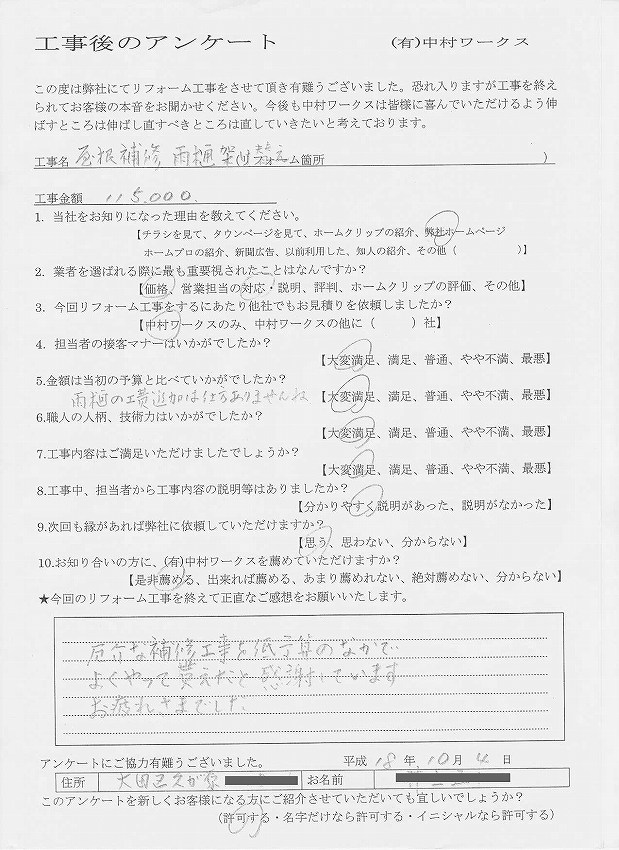 工事後のアンケート (有)中村ワークス
この度は弊社にてリフォーム工事をさせて頂き有難うございました。恐れ入りますが工事を終え
られてお客様の本音をお聞かせください。今後も中村ワークスは皆様に喜んでいただけるよう伸
ばすところは伸ばし直すべきところは直していきたいと考えております。
工事名 屋根補修 雨樋架け替え(リフォーム箇所 )
工事金額 115.000.
1. 当社をお知りになった理由を教えてください。
【チラシを見て、タウンページを見て、ホームクリップの紹介、弊社ホームページ
ホームプロの紹介、新聞広告、以前利用した、知人の紹介、その他（ ）】
2. 業者を選ばれる際に最も重要視されたことはなんですか？
【価格、営業担当の対応・説明、評判、ホームクリップの評価、その他】
3. 今回リフォーム工事をするにあたり他社でもお見積りを依頼しましたか？
【中村ワークスのみ、中村ワークスの他に（ ）社】
4. 担当者の接客マナーはいかがでしたか？
【大変満足、満足、普通、やや不満、最悪】
5.金額は当初の予算と比べていかがでしたか？
雨樋の工費追加は仕方ありませんね 【大変満足、満足、普通、やや不満、最悪】
6.職人の人柄、技術力はいかがでしたか？
【大変満足、満足、普通、やや不満、最悪】
7.工事内容はご満足いただけましたでしょうか？
【大変満足、満足、普通、やや不満、最悪】
8.工事中、担当者から工事内容の説明等はありましたか？
【分かりやすく説明があった、説明がなかった】
9.次回も縁があれば弊社に依頼していただけますか？
【思う、思わない、分からない】
10.お知り合いの方に、(有)中村ワークスを薦めていただけますか？
【是非薦める、出来れば薦める、あまり薦めれない、絶対薦めない、分からない】
★今回のリフォーム工事を終えて正直なご感想をお願いいたします。
厄介な補修工事を低予算のなかで
よくやって貰えたと感謝しています
お疲れさまでした
アンケートにご協力有難うございました。 平成 18 年 10 月 4 日
住所 大田区久が原 お名前
このアンケートを新しくお客様になる方にご紹介させていただいても宜しいでしょうか？
(許可する・名字だけなら許可する・イニシャルなら許可する)